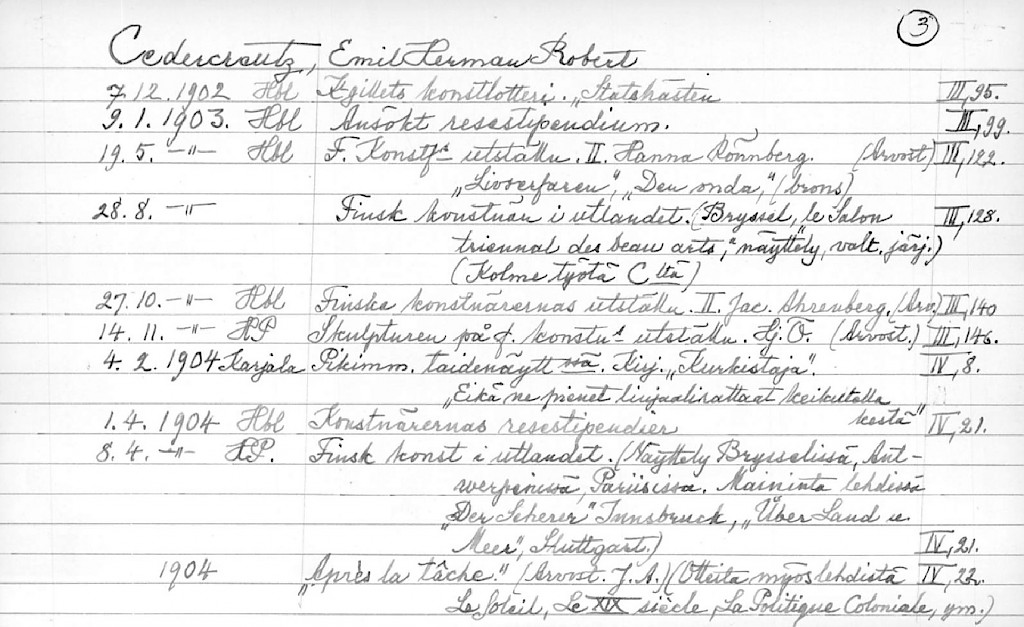 3
Cedercreutz, Emil Herman Robert
7.12.1902 Hbl K-gillets konstlotteri. „Statskasten III, 95.
9.1.1903. Hbl Ansökt resestipendium. III, 99.
19.5. –"– Hbl F. Konstfs utställn. II. Hanna Rönnberg. (Arvost) III, 122.
„Livserfaren", „Den onda," (brons)
28.8. –"– Finsk konstnär i utlandet. (Bryssel, „le Salon III, 128.
triennal des beau arts," näyttely, valt. järj.)
(Kolme työtä C:ltä)
27.10. –"– Hbl Finska konstnärernas utställn. II. Jac. Ahrenberg. (Arv.) III, 140
14.11. –"– HP Skulpturen på f. konstns utställn. Hj. Ö. (Arvost.) III, 146.
4.2.1904 Karjala Pikimm. taidenäyttssä. Kirj. „Kurkistaja". IV, 8.
„Eikä ne pienet linjaalirattaat keikutella
kestä"
1.4.1904 Hbl Konstnärernas resestipendier IV, 21.
8.4. –"– HP. Finsk konst i utlandet. (Näyttely Brysselissä, Ant-
werpenissä, Pariisissa. Maininta lehdissä
„Der Scherer" Innsbruck, „Über Land u.
Meer", Stuttgart.) IV, 21.
1904 „Après la tâche." (Arvost. J.A.) (Otteita myös lehdistä IV, 22.
Le Soleil, Le XIX siècle, La Politique Coloniale, ym.)